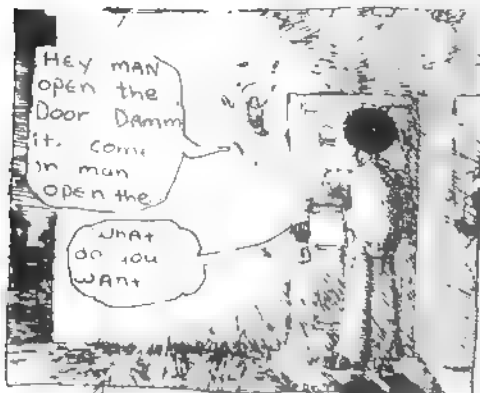 HEY MAN
open the
Door Damm
it. come
in man
open the
what
do you
want